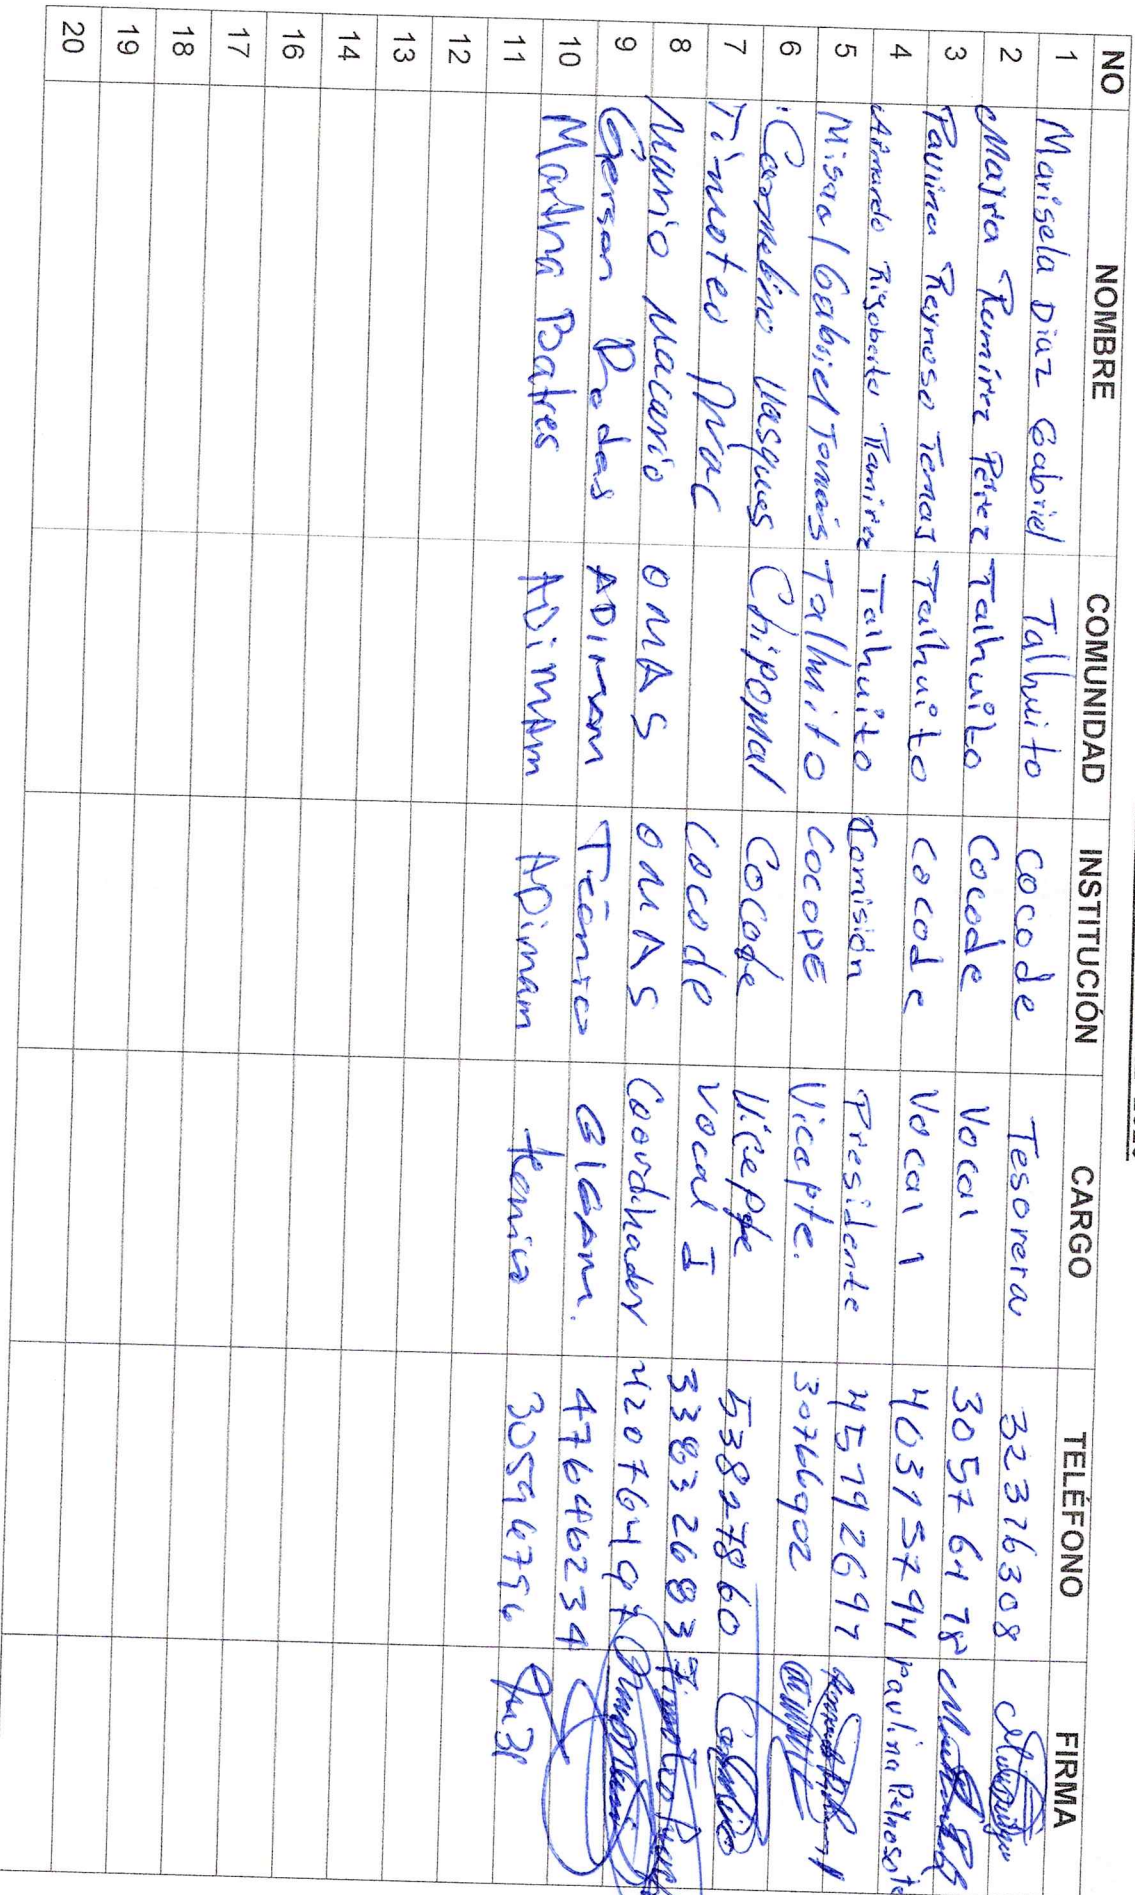 NO NOMBRE COMUNIDAD INSTITUCIÓN CARGO TELÉFONO FIRMA
1 Marisela Diaz Gabriel Talhuito Cocode Tesorera 32376308
2 Mayra Ramírez Pérez Talhuito Cocode Vocal 30576478
3 Paulina Reynoso Tomas Talhuito Cocode Vocal 1 40315794 Paulina Reynoso
4 Armando Rigoberto Ramirez Talhuito Comisión Presidente 45792697
5 Misael Gabriel Tomás Talhuito COCODE Vicepte. 30766902
6 Carmelino Vasques Chipomal Cocode Vicepte 53827860
7 Timoteo Cocode Vocal I 33832683 Timoteo
8 Mario Macario OMAS OMAS Coordinador 42076497
9 Gerson Rodas ADIMAM Técnico GIGAM. 47646234
10 Martha Batres ADIMAM ADIMAM 30596756
11
12
13
14
16
17
18
19
20